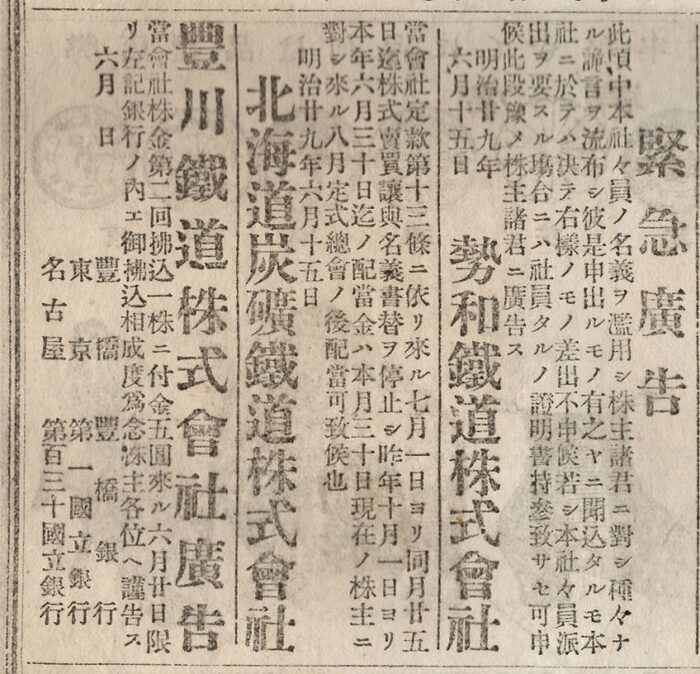 緊急廣告
此頃中本社々員ノ名義ヲ濫用シ株主諸君ニ對シ種々ナ
ル諦言ヲ流布シ彼是申出ルモノ有之ヤニ聞込タルモ本
社ニ於テハ决テ右樣ノモノ差出不申候若シ本社々員派
出ヲ要スル塲合ニハ社員タルノ證明書持參致サセ可申
候此段豫メ株主諸君ニ廣告ス
明治廿九年
六月十五日
勢和鐵道株式會社
當會社定款第十三條ニ依リ來ル七月一日ヨリ同月廿五
日迄株式賣買讓與名義書替ヲ停止シ昨年十月一日ヨリ
本年六月三十日迄ノ配當金ハ本月三十日現在ノ株主ニ
對シ來ル八月定式總會ノ後配當可致候也
明治廿九年六月十五日
北海道炭礦鐵道株式會社
豐川鐵道株式會社廣告
當會社株金第二回拂込一株ニ付金五圓來ル六月廿日限
リ左記銀行ノ內エ御拂込相成度爲念株主各位ヘ謹告ス
六月 日
豐橋 豐橋銀行
東京 第一國立銀行
名古屋 第百三十國立銀行